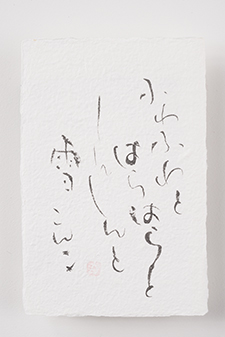 ふわふわと
はらはらと
しんしんと
雪こんこ